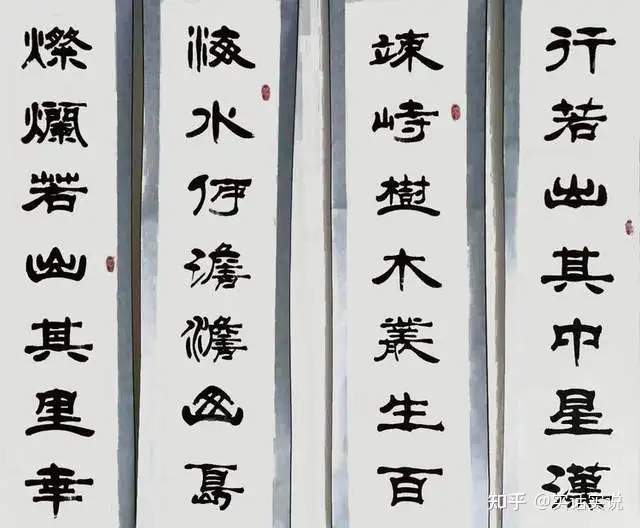 行若出其中星漢
竦峙樹木叢生百
海水何澹澹山島
燦爛若出其里幸
知乎 @实话实说